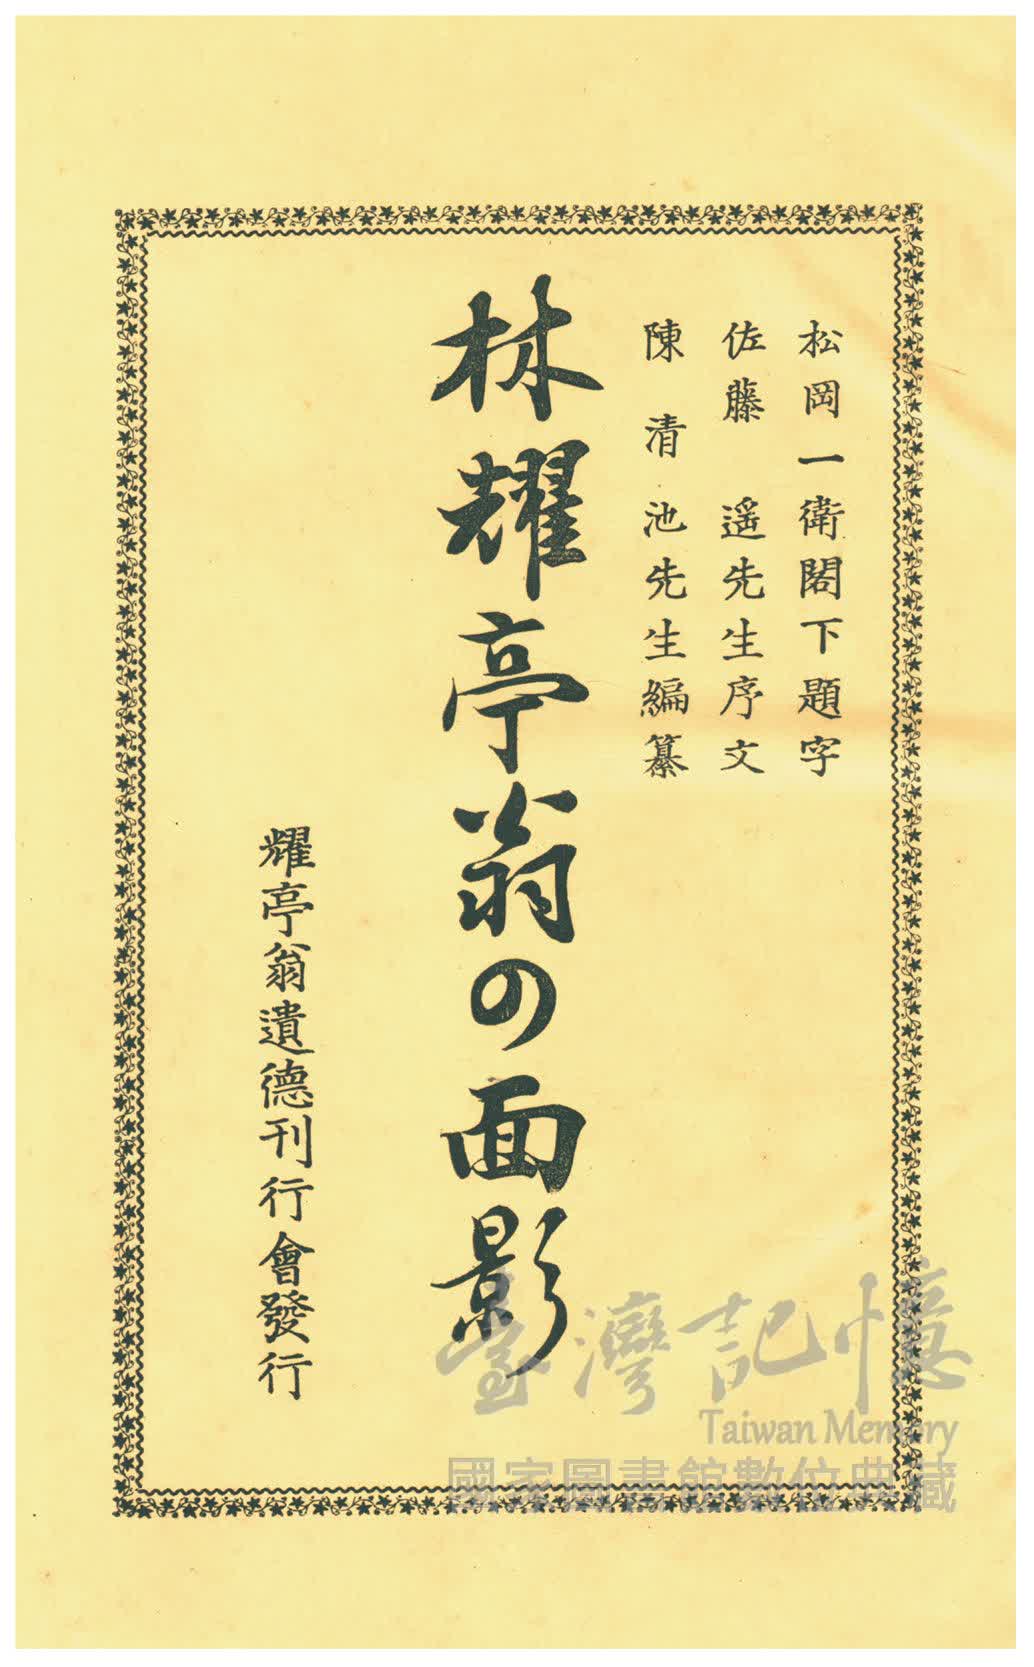 松岡一衛閣下題字
佐藤 遥先生序文
陳 清池先生編纂
林耀亭翁の面影
耀亭翁遺德刊行會發行
臺灣記憶
Taiwan Memory
國家圖書館數位典藏